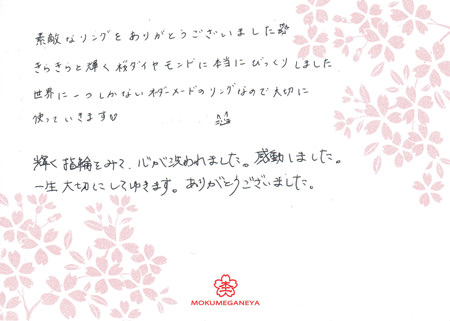 素敵なリングをありがとうございました
きらきらと輝く桜ダイヤモンドに本当にびっくりしました
世界に一つしかないオーダーメードのリングなので大切に
使っていきます♡
輝く指輪をみて、心が洗われました。感動しました。
一生大切にしてゆきます。ありがとうございました。
MOKUMEGANEYA